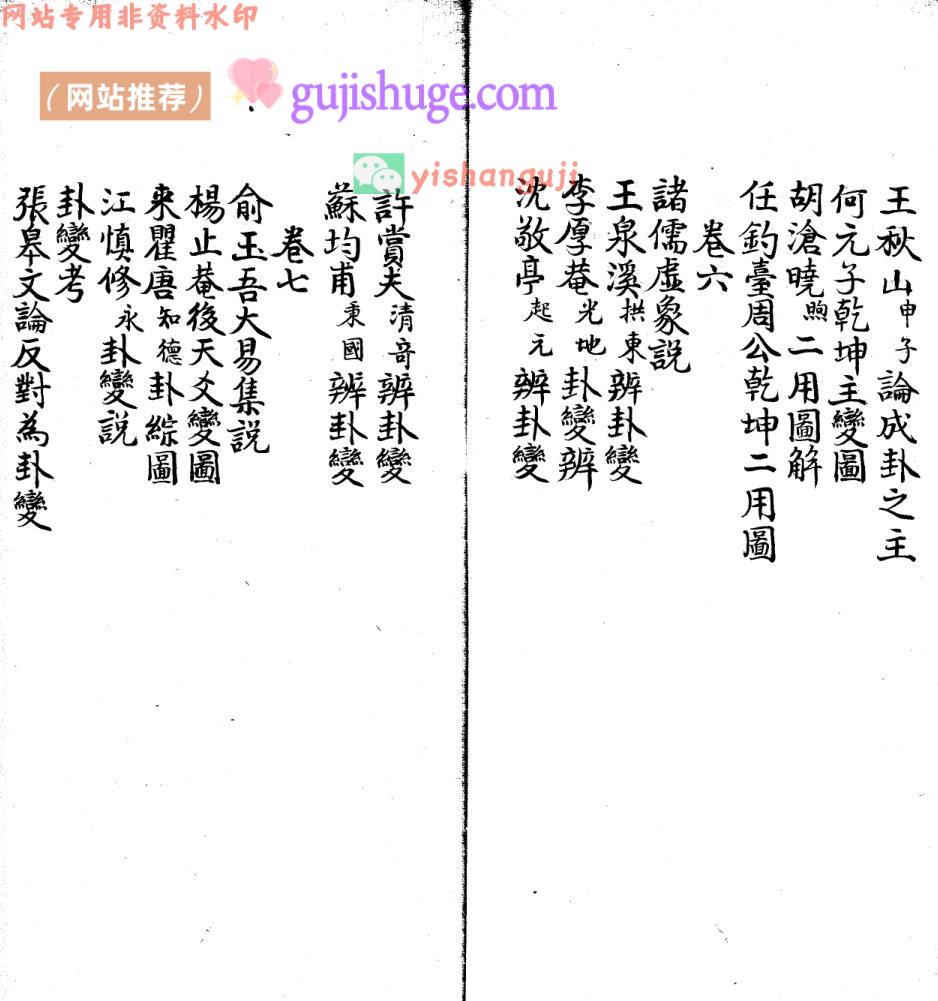 网站专用非资料水印
（网站推荐）
gujishuge.com
yishanguji
王秋山申子論成卦之主
何元子乾坤主變圖
胡滄曉煦二用圖解
任釣臺周公乾坤二用圖
卷六
諸儒虛象説
王泉溪拱東辨卦變
李厚菴光地卦變辨
沈敬亭起元辨卦變
許賞夫清奇辨卦變
蘇均甫秉國辨卦變
卷七
俞玉吾大易集説
楊止菴後天爻變圖
來瞿唐知德卦綜圖
江慎修永卦變説
卦變考
張皋文論反對為卦變